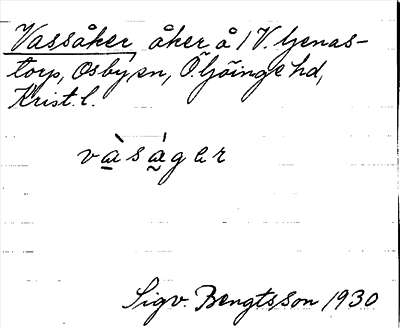 Vassåker, åker å 1 V. Genas-
torp, Osby sn, Ö. Göinge hd,
Krist. l.
vàság er
Sigv. Bengtsson 1930